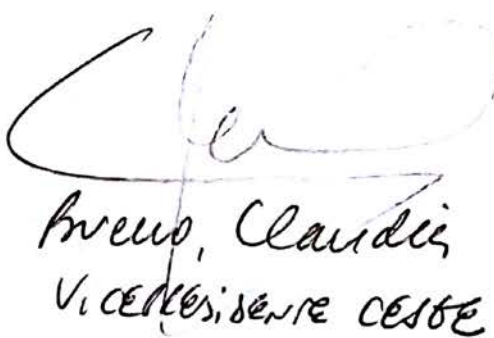 Bueno, Claudia
VICEPRESIDENTE CESBE